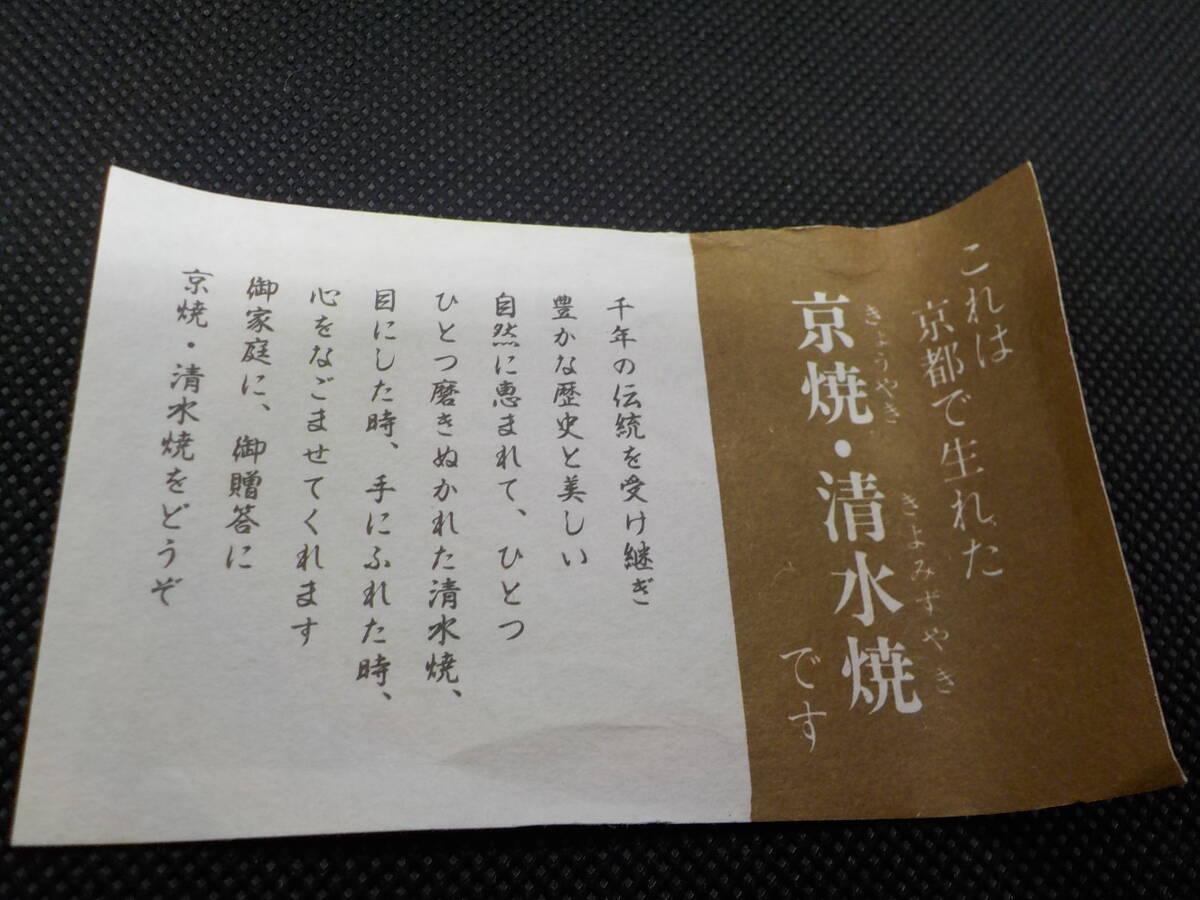 これは
京都で生れた
きょうやき きよみずやき
京焼・清水焼
です
千年の伝統を受け継ぎ
豊かな歴史と美しい
自然に恵まれて、ひとつ
ひとつ磨きぬかれた清水焼、
目にした時、手にふれた時、
心をなごませてくれます
御家庭に、御贈答に
京焼・清水焼をどうぞ